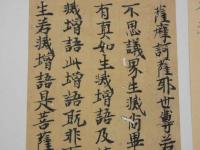 薩摩訶薩耶世尊若
不思議界生滅尚畢
有真如生滅增語及
滅增語此增語既非
生若滅增語是菩薩